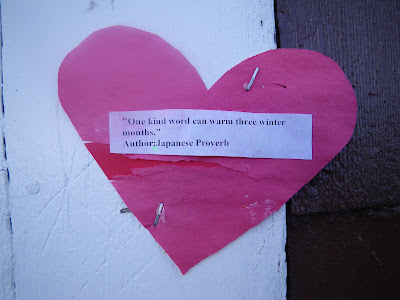 "One kind word can warm three winter
months."
Author:Japanese Proverb